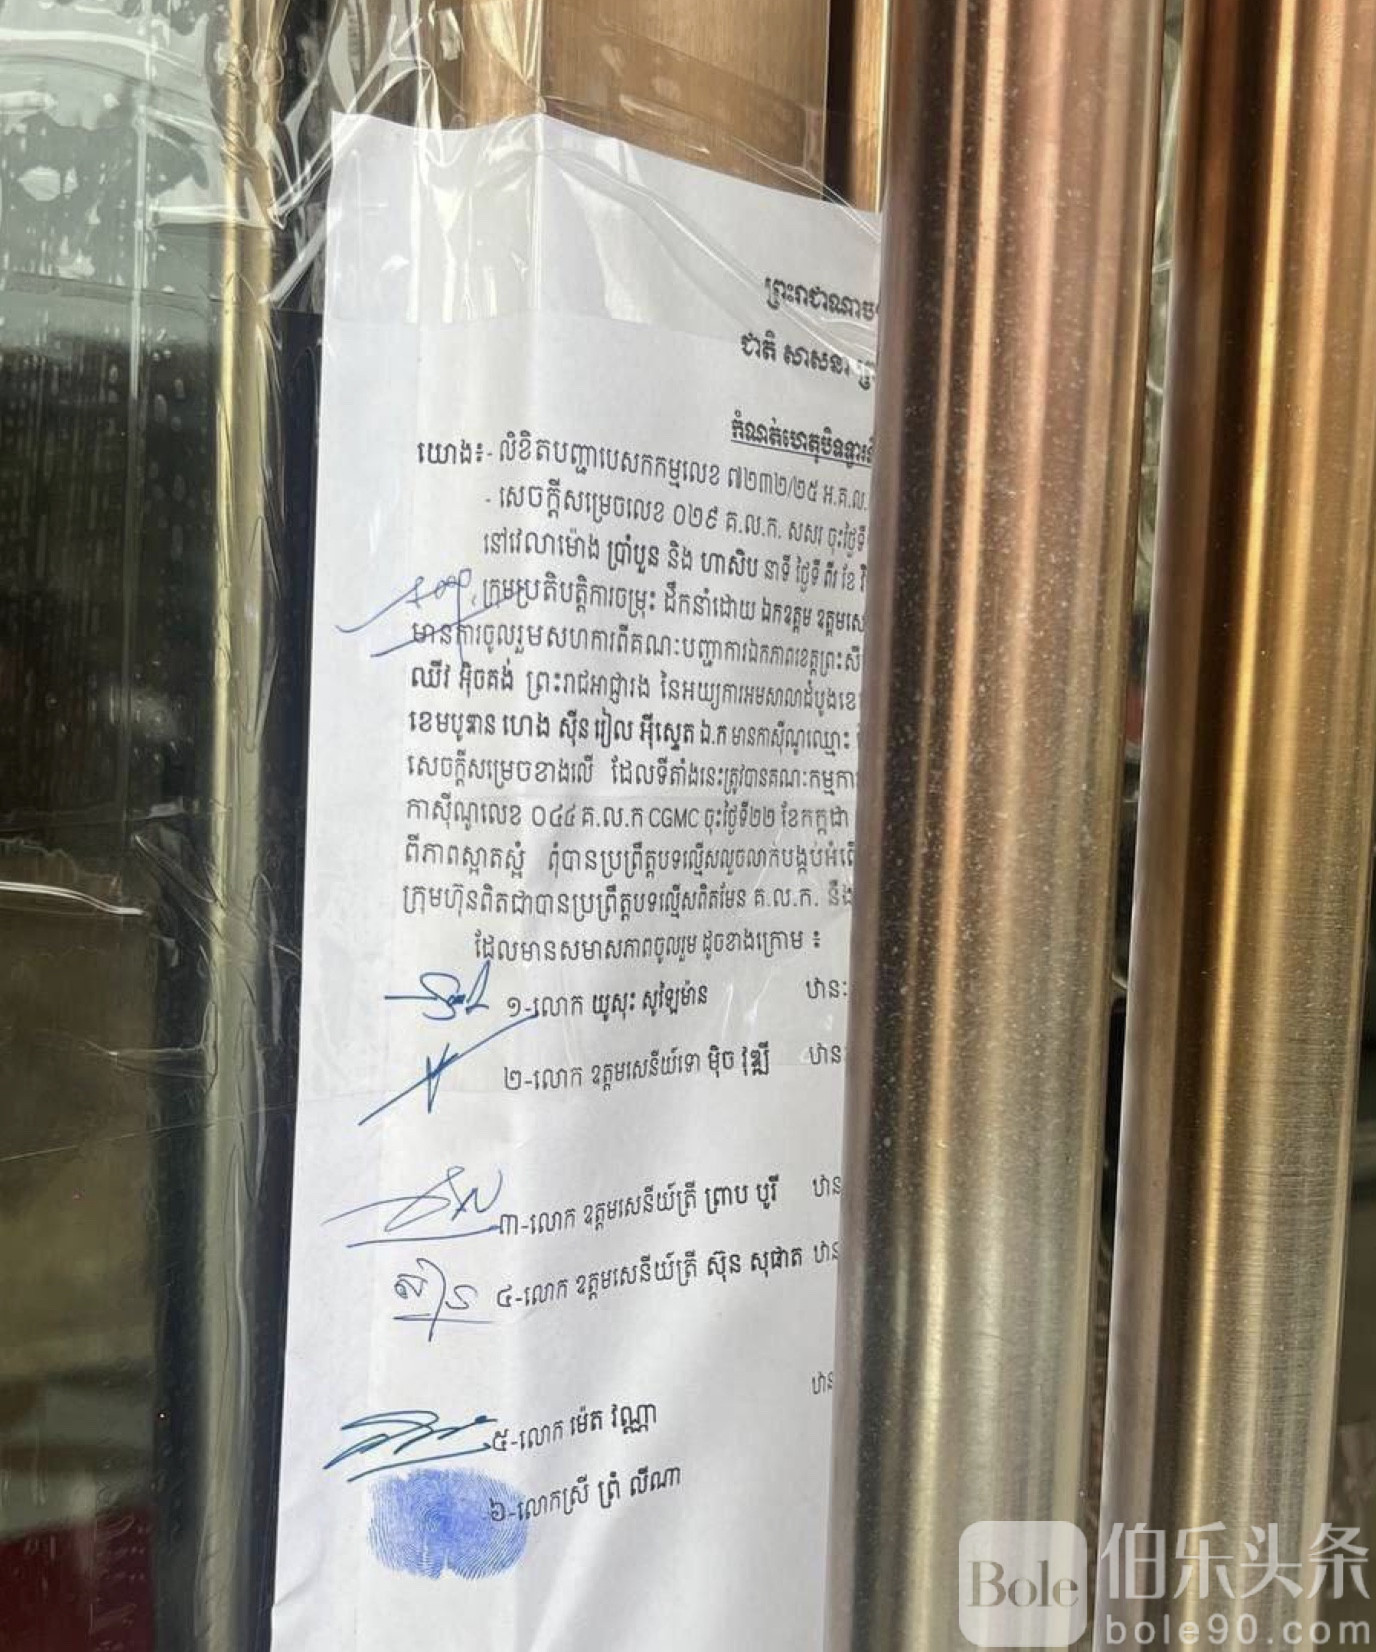 ព្រះរាជាណាច
ជាតិ សាសនា ព្រ
កំណត់ហេតុបិទទ្វារ
យោង៖- លិខិតបញ្ជាបេសកកម្មលេខ ៧២៣២/២៥ អ.គ.ល.
- សេចក្តីសម្រេចលេខ ០២៩ គ.ល.ក. សសរ ចុះថ្ងៃទី
នៅវេលាម៉ោង ប្រាំបួន និង ហាសិប នាទី ថ្ងៃទី ពីរ ខែ វិ
ក្រុមប្រតិបត្តិការចម្រុះ ដឹកនាំដោយ ឯកឧត្តម ឧត្តមសេ
មានការចូលរួមសហការពីគណៈបញ្ជាការឯកភាពខេត្តព្រះសី
ឈីវ អ៊ិចគង់ ព្រះរាជអាជ្ញារង នៃអយ្យការអមសាលាដំបូងខេ
ខេមបូឌាន ហេង ស៊ីន រៀល អ៊ីស្ទេត ឯ.ក មានកាស៊ីណូឈ្មោះ
សេចក្តីសម្រេចខាងលើ ដែលទីតាំងនេះត្រូវបានគណៈកម្មកា
កាស៊ីណូលេខ ០៤៤ គ.ល.ក CGMC ចុះថ្ងៃទី២២ ខែកក្កដា
ពីភាពស្អាតស្អំ ពុំបានប្រព្រឹត្តបទល្មើសលួចលាក់បង្កប់អំពើ
ក្រុមហ៊ុនពិតជាបានប្រព្រឹត្តបទល្មើសពិតមែន គ.ល.ក. នឹង
ដែលមានសមាសភាពចូលរួម ដូចខាងក្រោម ៖
១-លោក យូសុះ សូឡៃម៉ាន ឋានៈ
២-លោក ឧត្តមសេនីយ៍ទោ ម៉ិច វុឌ្ឍី ឋានៈ
៣-លោក ឧត្តមសេនីយ៍ត្រី ព្រាប បូរី ឋាន
៤-លោក ឧត្តមសេនីយ៍ត្រី ស៊ុន សុផាត ឋាន
ឋាន
៥-លោក ម៉េត វណ្ណា
៦-លោកស្រី ព្រំ លីណា
Bole 伯乐头条
bole90.com